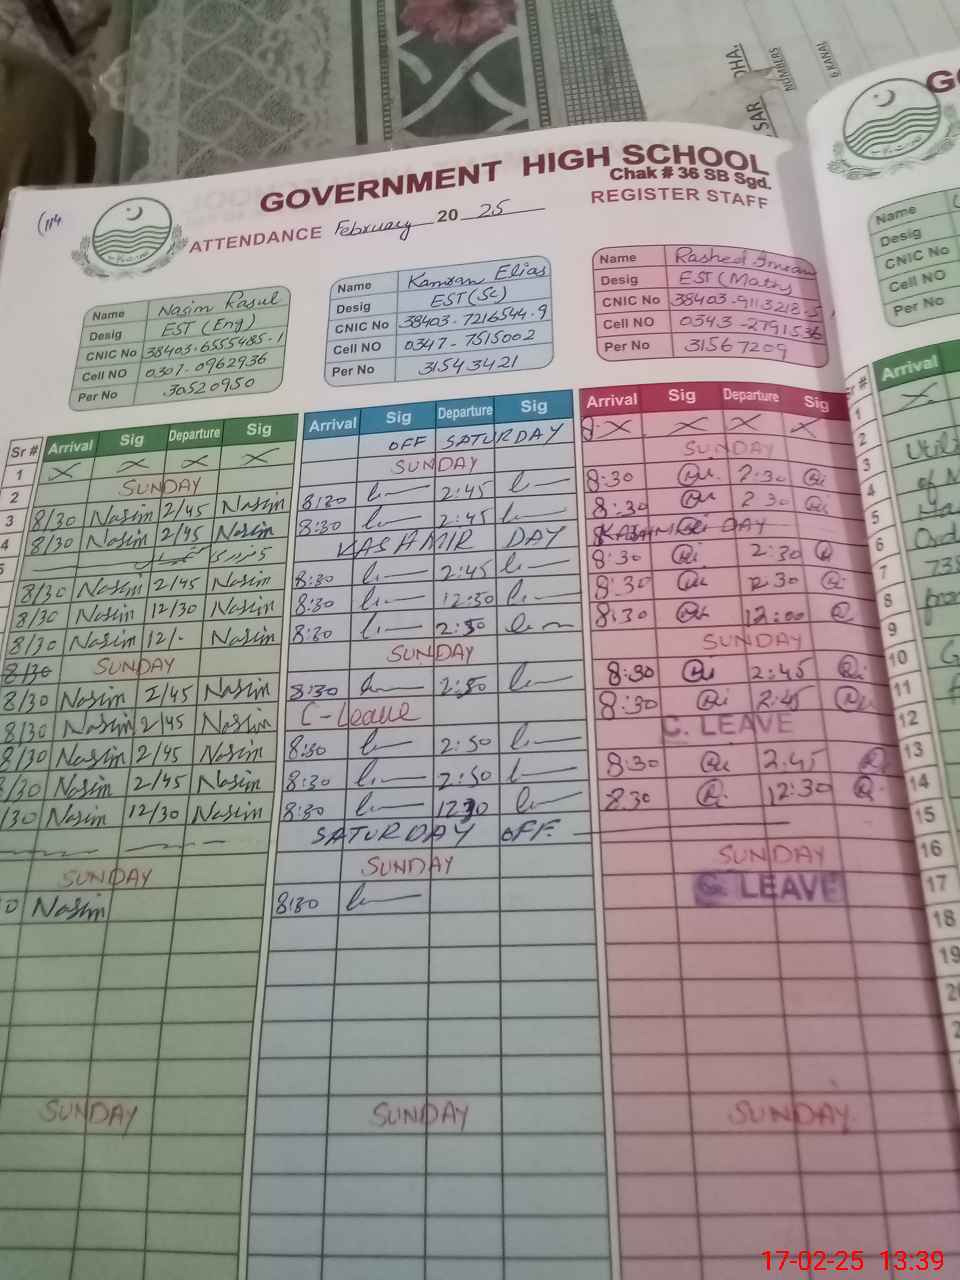 GOVERNMENT HIGH SCHOOL
Chak # 36 SB Sgd.
ATTENDANCE February 20 25 REGISTER STAFF
Name Nasim Rasul
Desig EST (Eng)
CNIC No 38403-6555485-1
Cell NO 0307-0962936
Per No 30520950
Name Kamran Elias
Desig EST(Sc)
CNIC No 38403-7216544-9
Cell NO 0347-7515002
Per No 31543421
Name Rashed Imran
Desig EST (Maths)
CNIC No 38403-9113218-5
Cell NO 0343-2791536
Per No 31567209
Name
Desig
CNIC No
Cell NO
Per No
Sr # Arrival Sig Departure Sig
1 X X X X
2 SUNDAY
3 8/30 Nasim 2/45 Nasim
4 8/30 Nasim 2/45 Nasim
5 5 فروری
8/30 Nasim 2/45 Nasim
8/30 Nasim 12/30 Nasim
8/30 Nasim 12/- Nasim
8/30 SUNDAY
8/30 Nasim 2/45 Nasim
8/30 Nasim 2/45 Nasim
8/30 Nasim 2/45 Nasim
8/30 Nasim 2/45 Nasim
/30 Nasim 12/30 Nasim
SUNDAY
0 Nasim
SUNDAY
Arrival Sig Departure Sig
OFF SATURDAY
SUNDAY
8:30 2:45
8:30 2:45
KASHMIR DAY
8:30 2:45
8:30 12:30
8:30
SUNDAY
8:30 2:50
C-Leave
8:30 2:50
8:30 2:50
8:30
SATURDAY OFF
SUNDAY
8:30
SUNDAY
Arrival Sig Departure Sig
X X X X
SUNDAY
8:30 2:30
8:30 2 30
KASHMIR DAY
8:30 2:30
8:30 2 30
8:30 12:00
SUNDAY
8:30 2:45
8:30 2:45
C. LEAVE
8:30 2:45
8 30 12:30
SUNDAY
C. LEAVE
SUNDAY
Arrival
1
2
3
4
5
6
7
8
9
10
11
12
13
14
15
16
17
18
19
NUMBERS
6 KANAL
SAR
17-02-25 13:39